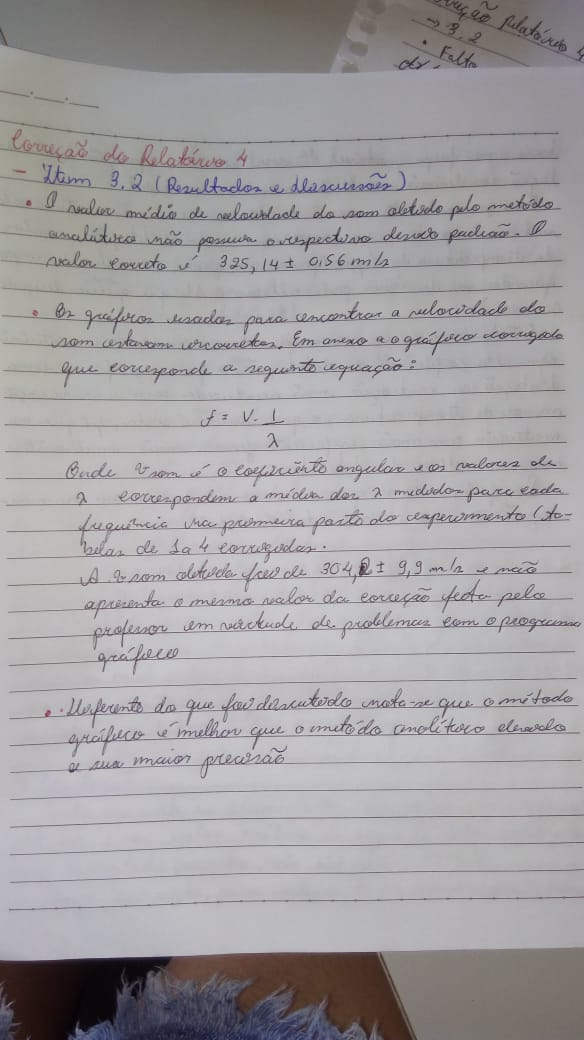 ução Relatório 4
→ 3.2
• Falta
Correção do Relatório 4
- Item 3.2 (Resultados e discussões)
• O valor médio de velocidade do som obtido pelo metódo
analítico não possuia o respectivo desvio padrão. O
valor correto é 325,14 ± 0,56 m/s
• Os gráficos usados para encontrar a velocidade do
som estavam incorretos. Em anexo a o gráfico corrigido
que corresponde a seguinte equação:
f = V. 1
λ
Onde v som é o coeficiente angular e os valores de
λ correspondem a média dos λ medidos para cada
frequência na primeira parte do experimento (ta-
belas de 1 a 4 corrigidas.
A v som obtida foi de 304,2 ± 9,9 m/s e não
apresenta o mesmo valor da correção feita pelo
professor em virtude de problemas com o programa
gráfico
• Diferente do que foi discutido nota-se que o método
gráfico é melhor que o metódo analítico devido
a sua maior precisão